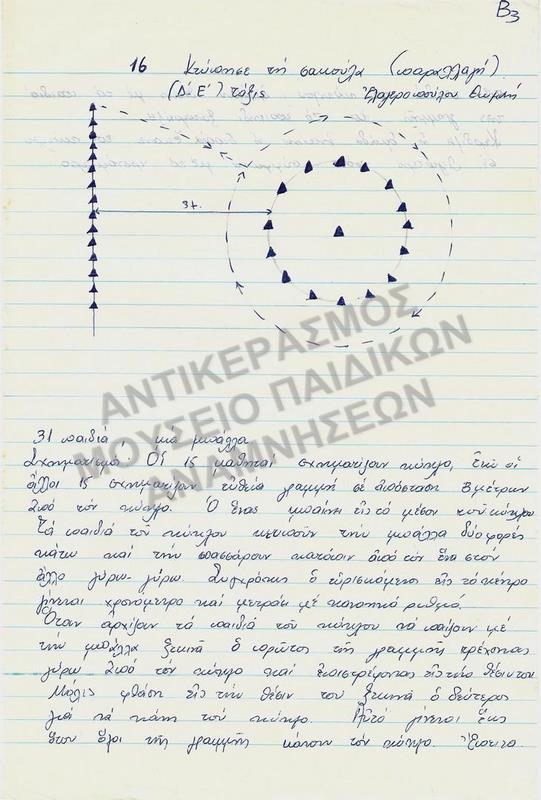 B3
16 Κτύπησε τή σακούλα (παραλλαγή)
(Δ-Ε') τάξις
3μ.
ΑΝΤΙΚΕΡΑΣΜΟΣ
ΜΟΥΣΕΙΟ ΠΑΙΔΙΚΩΝ
ΑΝΑΜΝΗΣΕΩΝ
31 παιδιά μιά μπάλλα
Σχηματισμό: Οἱ 15 μαθηταί σχηματίζουν κύκλο, ἐνῶ οἱ
ἄλλοι 15 σχηματίζουν εὐθεία γραμμή σέ ἀπόσταση 3 μέτρων
ἀπό τόν κύκλο. Ὁ ἕνας μπαίνει εἰς τό μέσον τοῦ κύκλου
Τά παιδιά τοῦ κύκλου κτυποῦν τήν μπάλλα δύο φορές
κάτω καί τήν πασσάρουν κατόπιν ἀπό τόν ἕνα στόν
ἄλλο γύρω-γύρω. Συγχρόνως ὁ εὑρισκόμενος εἰς τό κέντρο
γίνεται χρονόμετρο καί μετράει μέ κανονικό ρυθμό.
Ὅταν ἀρχίζουν τά παιδιά τοῦ κύκλου νά παίζουν μέ
τήν μπάλλα ξεκινᾶ ὁ πρῶτος τῆς γραμμῆς τρέχοντας
γύρω ἀπό τόν κύκλο καί ἐπιστρέφοντας εἰς τήν θέσιν του
Μόλις φθάση εἰς τήν θέσιν του ξεκινᾶ ὁ δεύτερος
γιά νά κάνη τοῦ κύκλου. Αὐτό γίνεται ἕως
ὅτου ὅλοι τῆς γραμμῆς κάνουν τόν κύκλο.